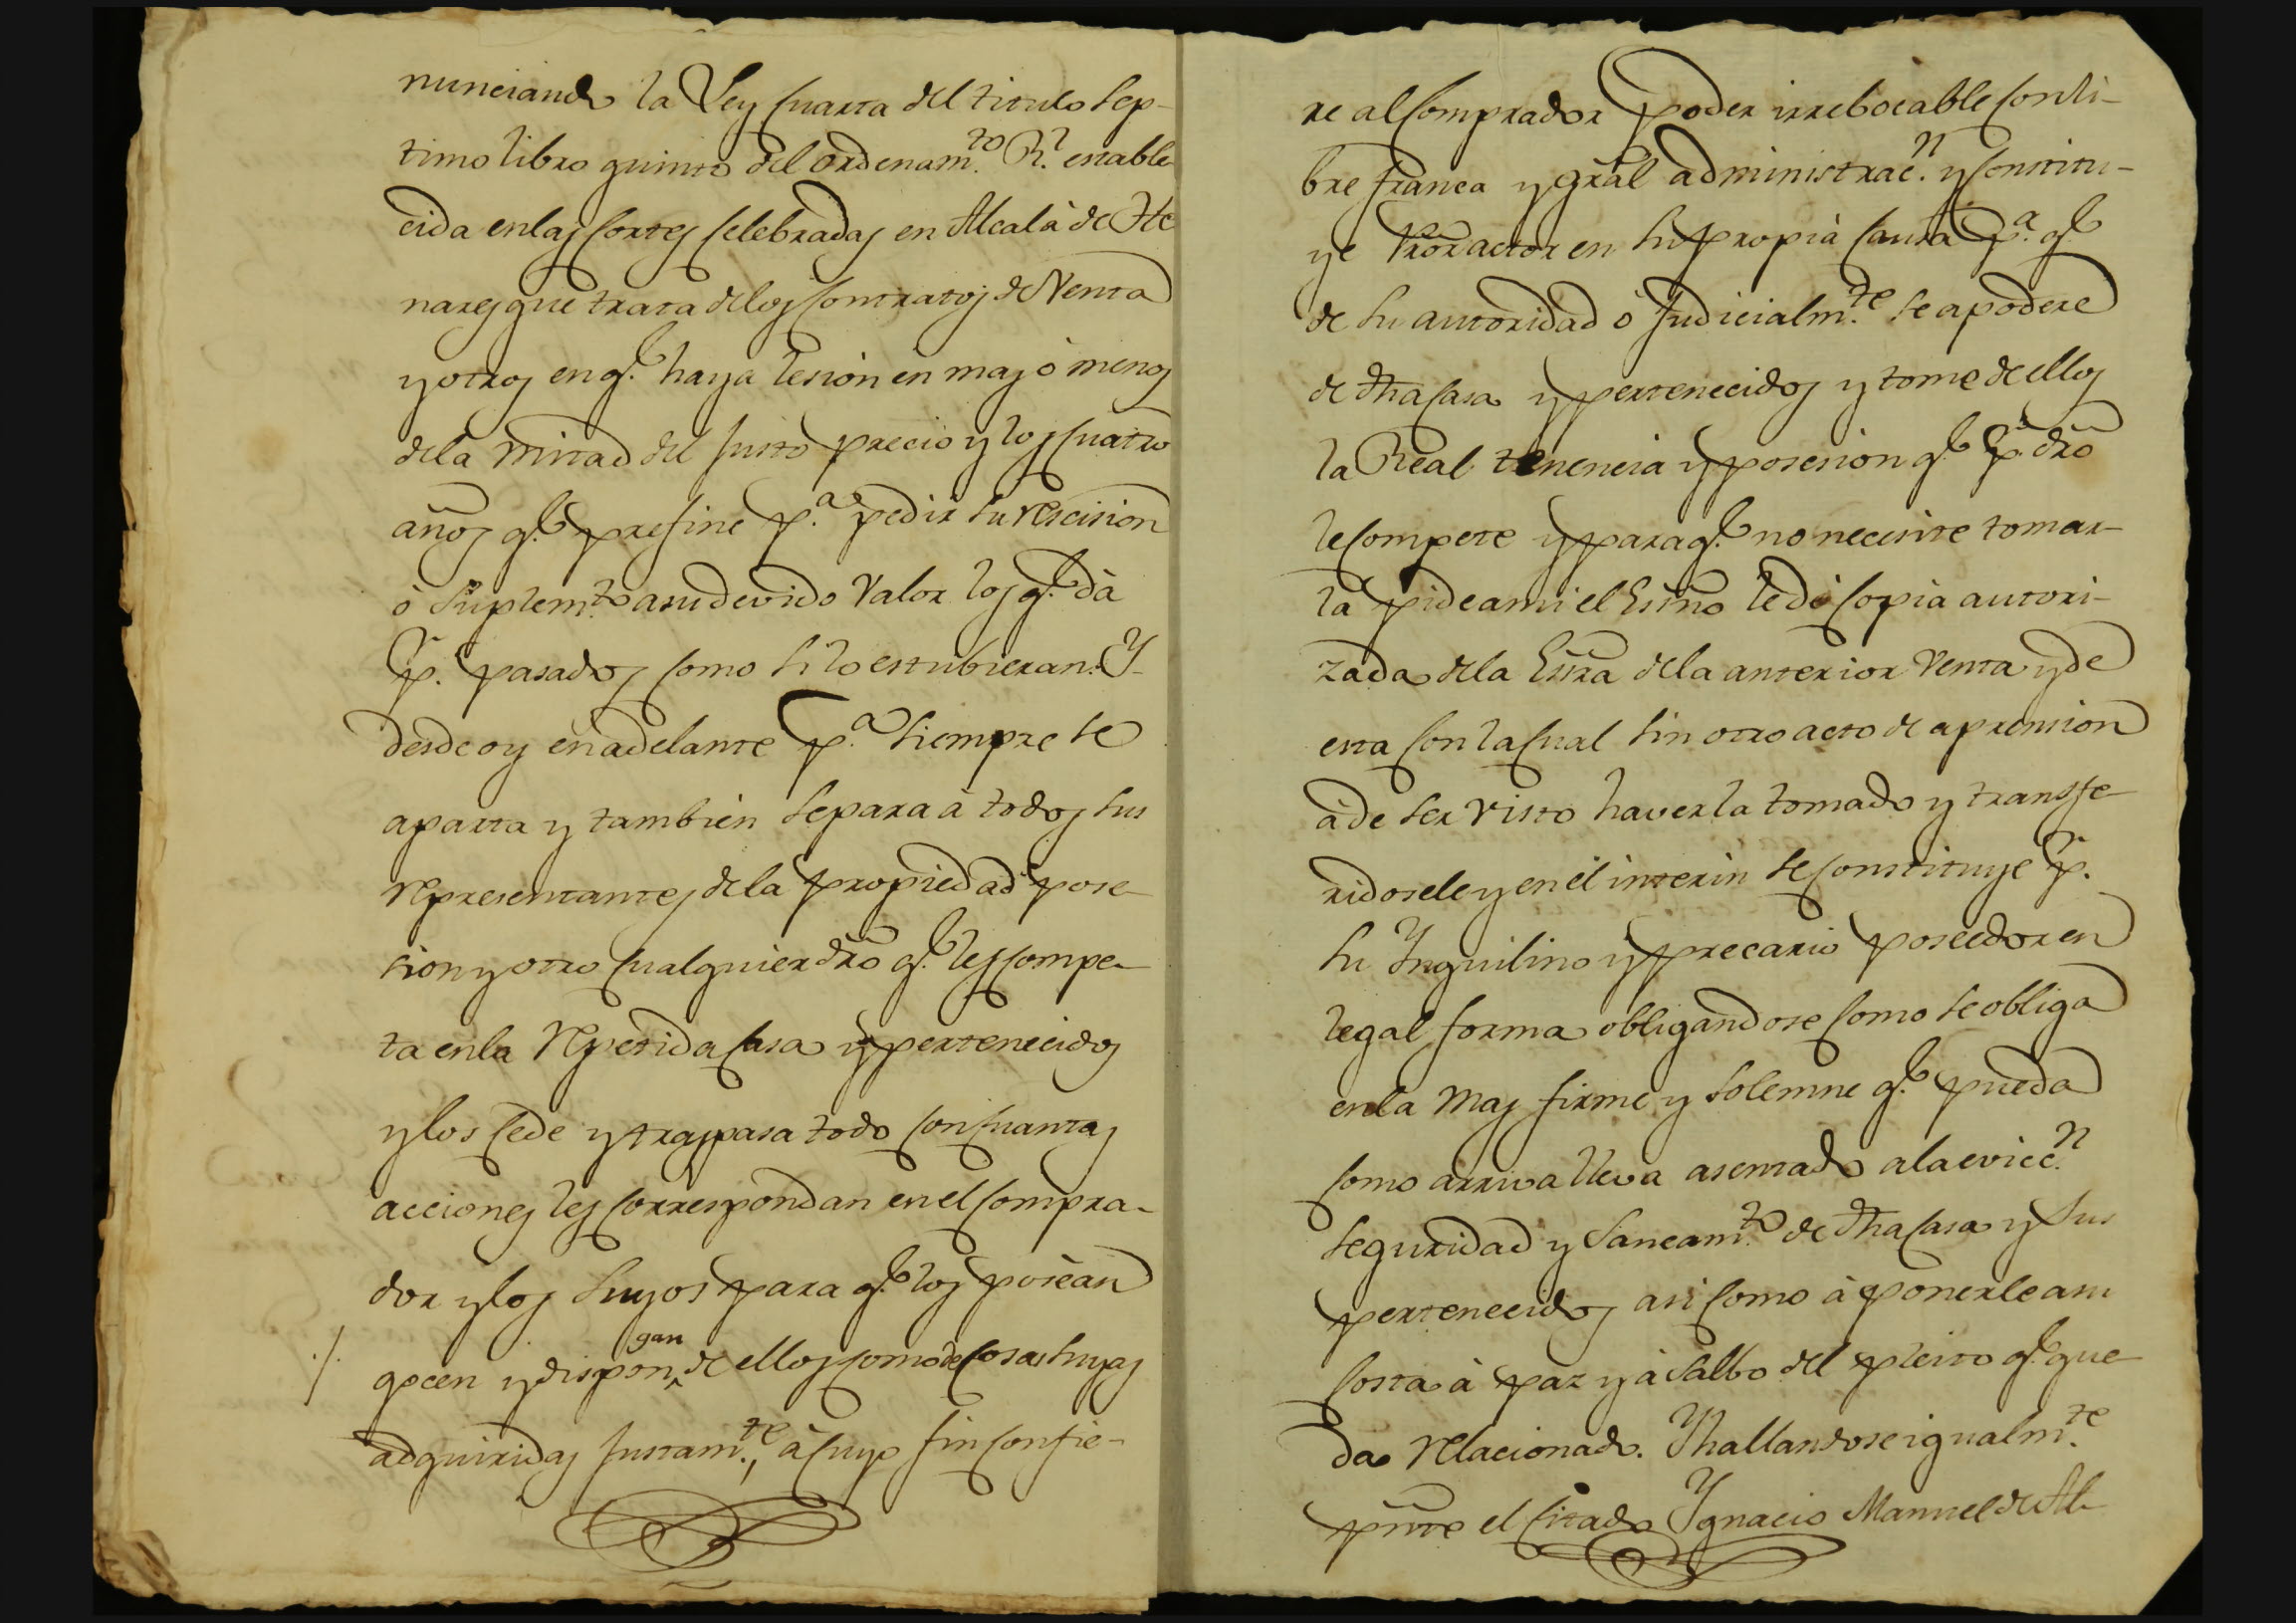 nunciando la Ley Cuarta del titulo Sep-
timo libro quinto del Ordenam.to R.l estable
cida en las Cortes Celebradas en Alcalà de He
nares que trata de los Contratos de Venta
y otros en q.e haya lesion en mas ò menos
de la mitad del Justo precio y los Cuatro
años q.e prefine p.a pedir su rescision
ò Suplem.to a su devido Valor los q.e dà
p.r pasados Como si lo estubieran: Y
desde oy en adelante p.a siempre se
aparta y tambien separa à todos sus
representantes de la propiedad pose-
sion y otro Cualquier dr̃o q.e les Compe-
ta en la repetida Casa y pertenecidos
y los Cede y traspasa todo Con Cuantas
acciones les Correspondan en el Compra-
dor y los suyos para q.e los posèan
gocen y dispongan de ellos como de Cosas suyas
adquiridas Justam.te, à Cuyo fin Confie-
re al Comprador poder irrebocable Con li-
bre franca y gr̃al administrac.n y Constitu-
ye Pror̃ actor en su propia Causa p.a q.e
de su autoridad ò Judicialm.te se apodere
de dh̃a Casa y pertenecidos y tome de ellos
la Real tenencia y posesion q.e p.r dr̃o
le Compete y para q.e no necesite tomar-
la pide a mi el Ess̃no le dè Copia autori-
zada de la Ess̃ra de la anterior Venta y de
esta Con la Cual sin otro acto de aprension
à de ser visto haverla tomado y transfe-
ridosele y en èl interin se Constituye p.r
su Ynquilino y precario poseedor en
legal forma obligandose Como se obliga
en la mas firme y solemne q.e pueda
Como arriva lleva asentado a la evicc.n
seguridad y Saneam.to de dh̃a Casa y sus
pertenecidos asi Como à ponerle a su
Costa à paz y à Salbo del pleito q.e que
da relacionado. Y hallandose igualm.te
pñte el Citado Ygnacio Manuel de Al-